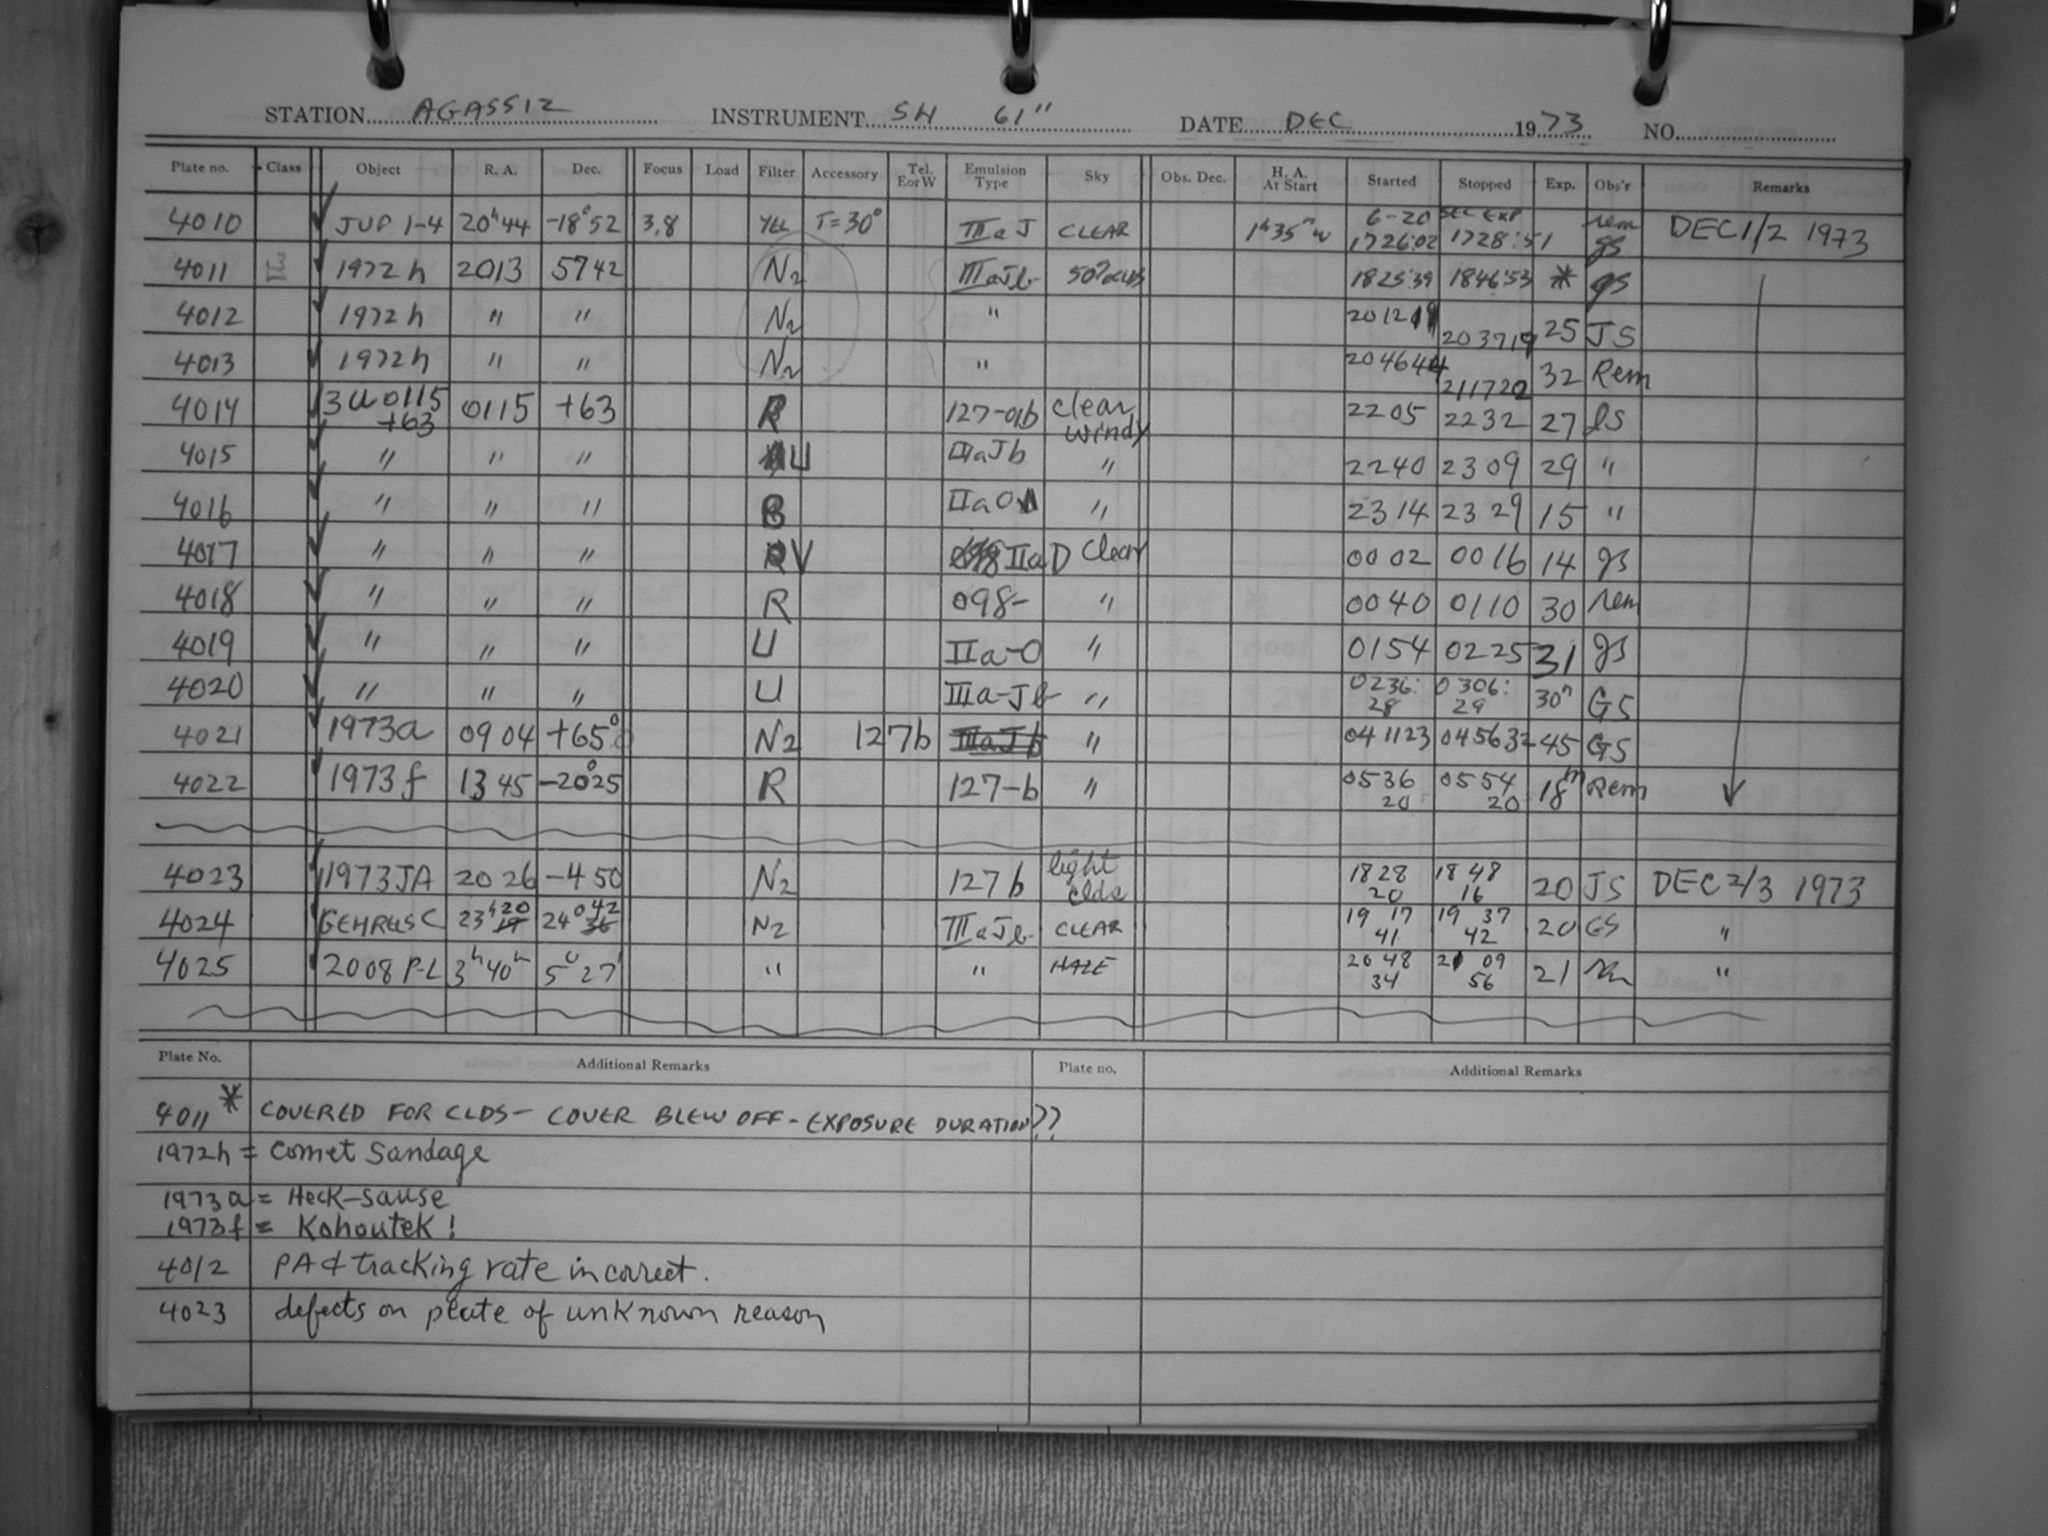 STATION AGASSIZ INSTRUMENT SH 61" DATE DEC 1973 NO.
Plate no. Class Object R. A. Dec. Focus Load Filter Accessory Tel. E or W Emulsion Type Sky Obs. Dec. H. A. At Start Started Stopped Exp. Obs'r Remarks
4010 JUP 1-4 20h44 -18°52 3.8 YEL T=30° IIIaJ CLEAR 1h35m W 6-20 SEC EXP 1726:02 1728:51 rem gs DEC 1/2 1973
4011 1972h 2013 5742 N2 IIIaJb 50% clds 1825:39 1846:53 * gs
4012 1972h " " N2 " 2012 203719 25 JS
4013 1972h " " N2 " 204644 211722 32 Rem
4014 3U0115 +63 0115 +63 R 127-01b clear windy 2205 2232 27 JS
4015 " " " U IIIaJb " 2240 2309 29 "
4016 " " " B IIaO " 2314 2329 15 "
4017 " " " V 098 IIaD Clear 0002 0016 14 gs
4018 " " " R 098- " 0040 0110 30 rem
4019 " " " U IIa-O " 0154 0225 31 gs
4020 " " " U IIIa-Jb " 0236:28 0306:29 30m GS
4021 1973a 0904 +65° N2 127b IIIaJb " 041123 045632 45 GS
4022 1973f 1345 -20°25 R 127-b " 0536 20 0554 20 18m Rem
4023 1973JA 2026 -450 N2 127b light clds 1828 20 1848 16 20 JS DEC 2/3 1973
4024 GEHRELS C 23h20 19 24°42 36 N2 IIIaJb CLEAR 19 17 41 19 37 42 20 GS "
4025 2008 P-L 3h40m 5°27' " " HAZE 20 48 34 21 09 56 21 "
Plate No. Additional Remarks Plate no. Additional Remarks
4011* COVERED FOR CLDS - COVER BLEW OFF - EXPOSURE DURATION??
1972h = Comet Sandage
1973a = Heck-Sause
1973f = Kohoutek!
4012 PA & tracking rate incorrect.
4023 defects on plate of unknown reason